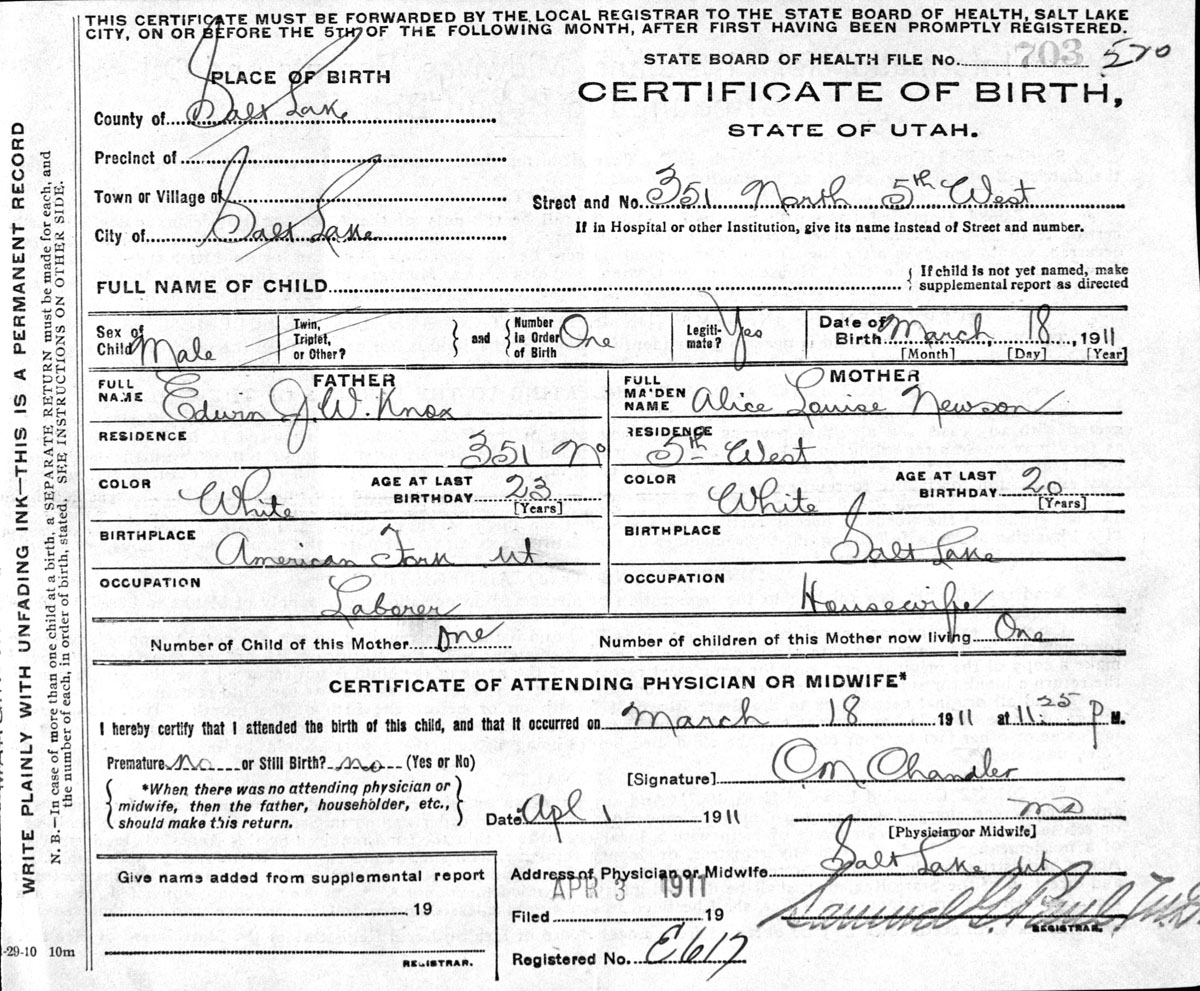 THIS CERTIFICATE MUST BE FORWARDED BY THE LOCAL REGISTRAR TO THE STATE BOARD OF HEALTH, SALT LAKE
CITY, ON OR BEFORE THE 5TH OF THE FOLLOWING MONTH, AFTER FIRST HAVING BEEN PROMPTLY REGISTERED.
STATE BOARD OF HEALTH FILE No. 703 570
PLACE OF BIRTH
CERTIFICATE OF BIRTH,
STATE OF UTAH.
County of Salt Lake
Precinct of
Town or Village of
City of Salt Lake
Street and No. 351 North 5th West
If in Hospital or other Institution, give its name instead of Street and number.
FULL NAME OF CHILD
{ If child is not yet named, make
supplemental report as directed
Sex of Child Male
Twin, Triplet, or Other?
} and { Number in Order of Birth One
Legiti-mate? Yes
Date of Birth March, 18, 1911
[Month] [Day] [Year]
FATHER
FULL NAME Edwin J W. Knox
MOTHER
FULL MAIDEN NAME Alice Louise Newson
RESIDENCE 351 No
RESIDENCE 5th West
COLOR White
AGE AT LAST BIRTHDAY 23 [Years]
COLOR White
AGE AT LAST BIRTHDAY 20 [Years]
BIRTHPLACE American Fork Ut
BIRTHPLACE Salt Lake
OCCUPATION Laborer
OCCUPATION Housewife
Number of Child of this Mother One
Number of children of this Mother now living One
CERTIFICATE OF ATTENDING PHYSICIAN OR MIDWIFE*
I hereby certify that I attended the birth of this child, and that it occurred on March 18 1911 at 11:25 P M.
Premature No or Still Birth? no (Yes or No)
[Signature] O.M. Chandler
{ *When there was no attending physician or
midwife, then the father, householder, etc.,
should make this return. }
Date Apl 1 1911
MD
[Physician or Midwife]
Give name added from supplemental report
19
REGISTRAR.
Address of Physician or Midwife Salt Lake Ut
APR 3 1911
Filed 19
Samuel G. Paul
REGISTRAR.
Registered No. E617
-29-10 10m
WRITE PLAINLY WITH UNFADING INK—THIS IS A PERMANENT RECORD
N. B.—In case of more than one child at a birth, a SEPARATE RETURN must be made for each, and
the number of each, in order of birth, stated. SEE INSTRUCTIONS ON OTHER SIDE.